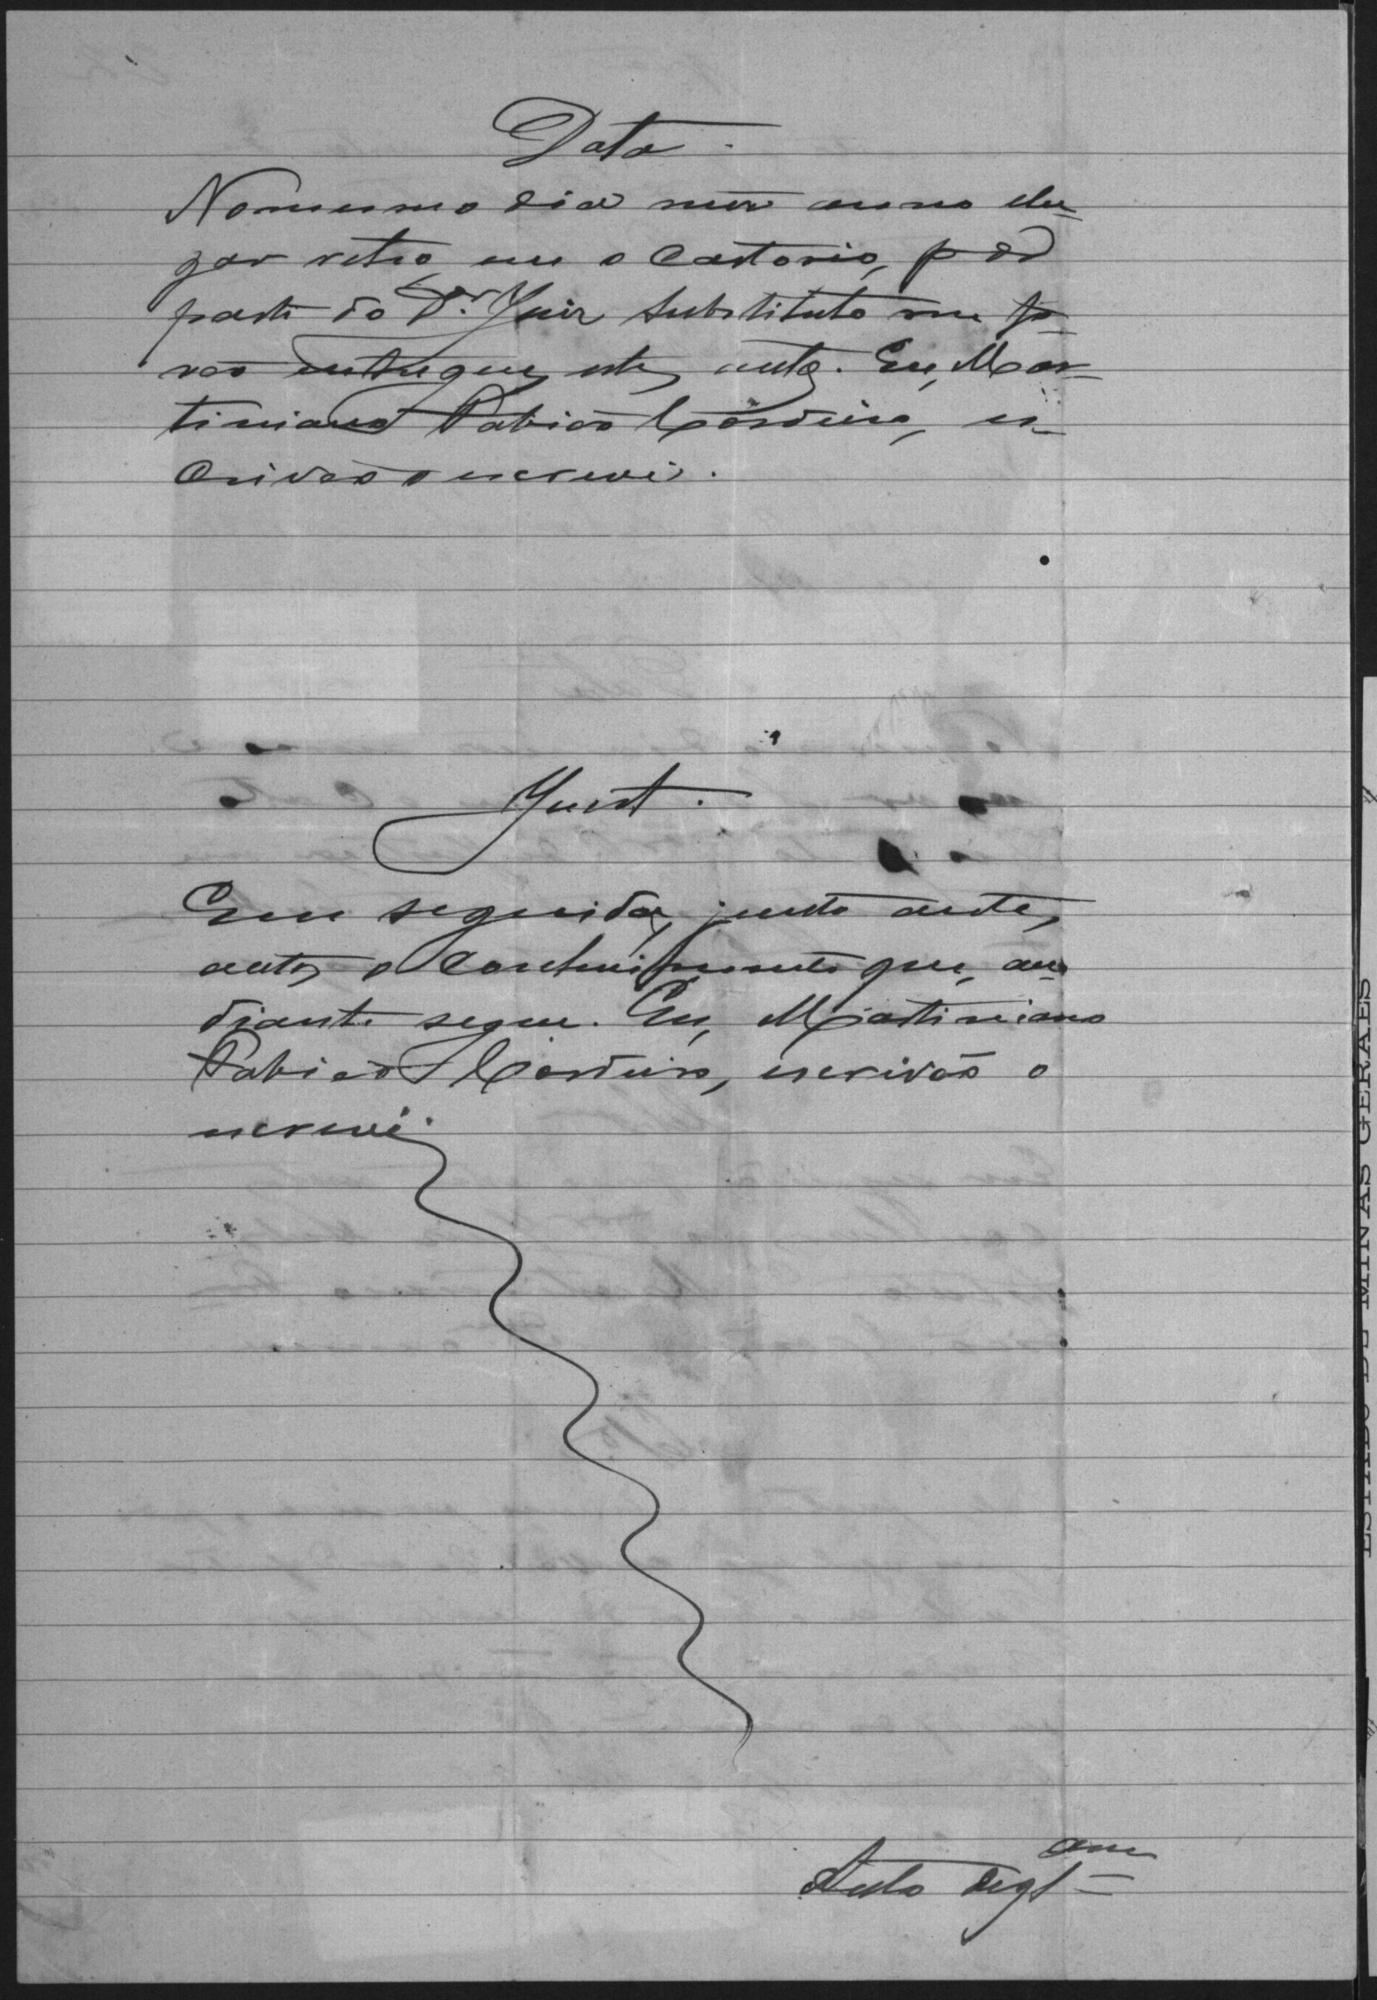 Data.
No mesmo dia mez anno e lu-
gar retro, em o Cartorio, por
parte do Dr. Juiz Substituto me fo-
rão entregues estes autos. Eu, Mar-
tiniano Cordeiro, es-
crivão o escrevi.
Junt.
Em seguida, junto a estes
autos, o que, a-
diante segue. Eu, Martiniano
Cordeiro, escrivão o
escrevi.
ESTADO DE MINAS GERAES